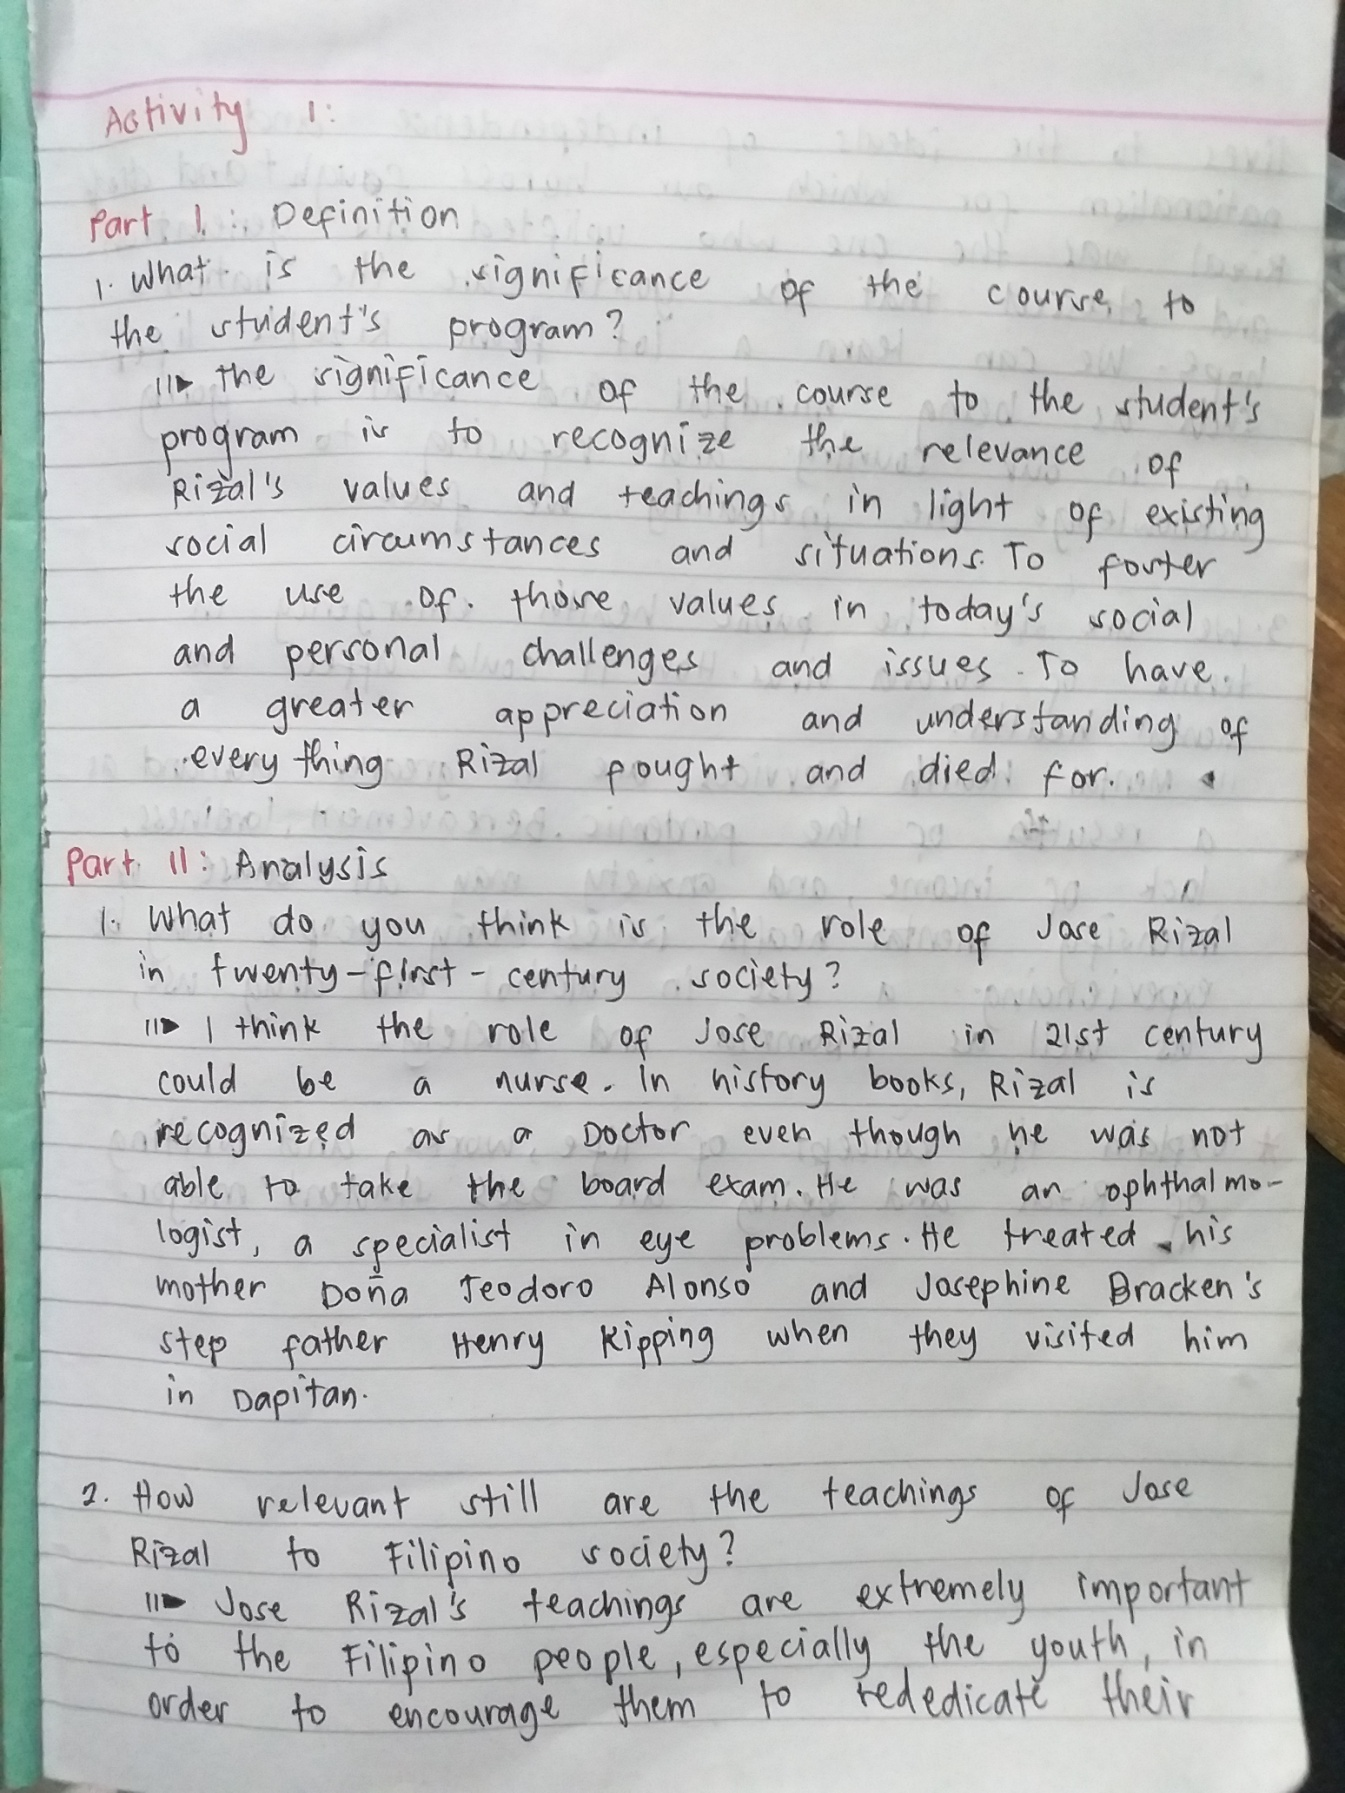 Activity 1:
Part I: Definition
1. What is the significance of the course to
the student's program?
the significance of the course to the student's
program is to recognize the relevance of
Rizal's values and teachings in light of existing
social circumstances and situations. To foster
the use of those values in today's social
and personal challenges and issues. To have
a greater appreciation and understanding of
every thing Rizal fought and died for.
Part II: Analysis
1. What do you think is the role of Jose Rizal
in twenty-first-century society?
I think the role of Jose Rizal in 21st century
could be a nurse. In history books, Rizal is
recognized as a Doctor even though he was not
able to take the board exam. He was an ophthalmo-
logist, a specialist in eye problems. He treated his
mother Doña Teodoro Alonso and Josephine Bracken's
step father Henry Kipping when they visited him
in Dapitan.
2. How relevant still are the teachings of Jose
Rizal to Filipino society?
Jose Rizal's teachings are extremely important
to the Filipino people, especially the youth, in
order to encourage them to rededicate their